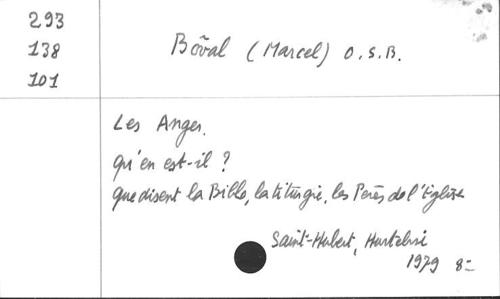 293
138
101
Bõval (Marcel) O.S.B.
Les Anges.
qu'en est-il ?
que disent la Bible, la liturgie, les Pères de l'Eglise
Saint-Hubert,
1979 8=